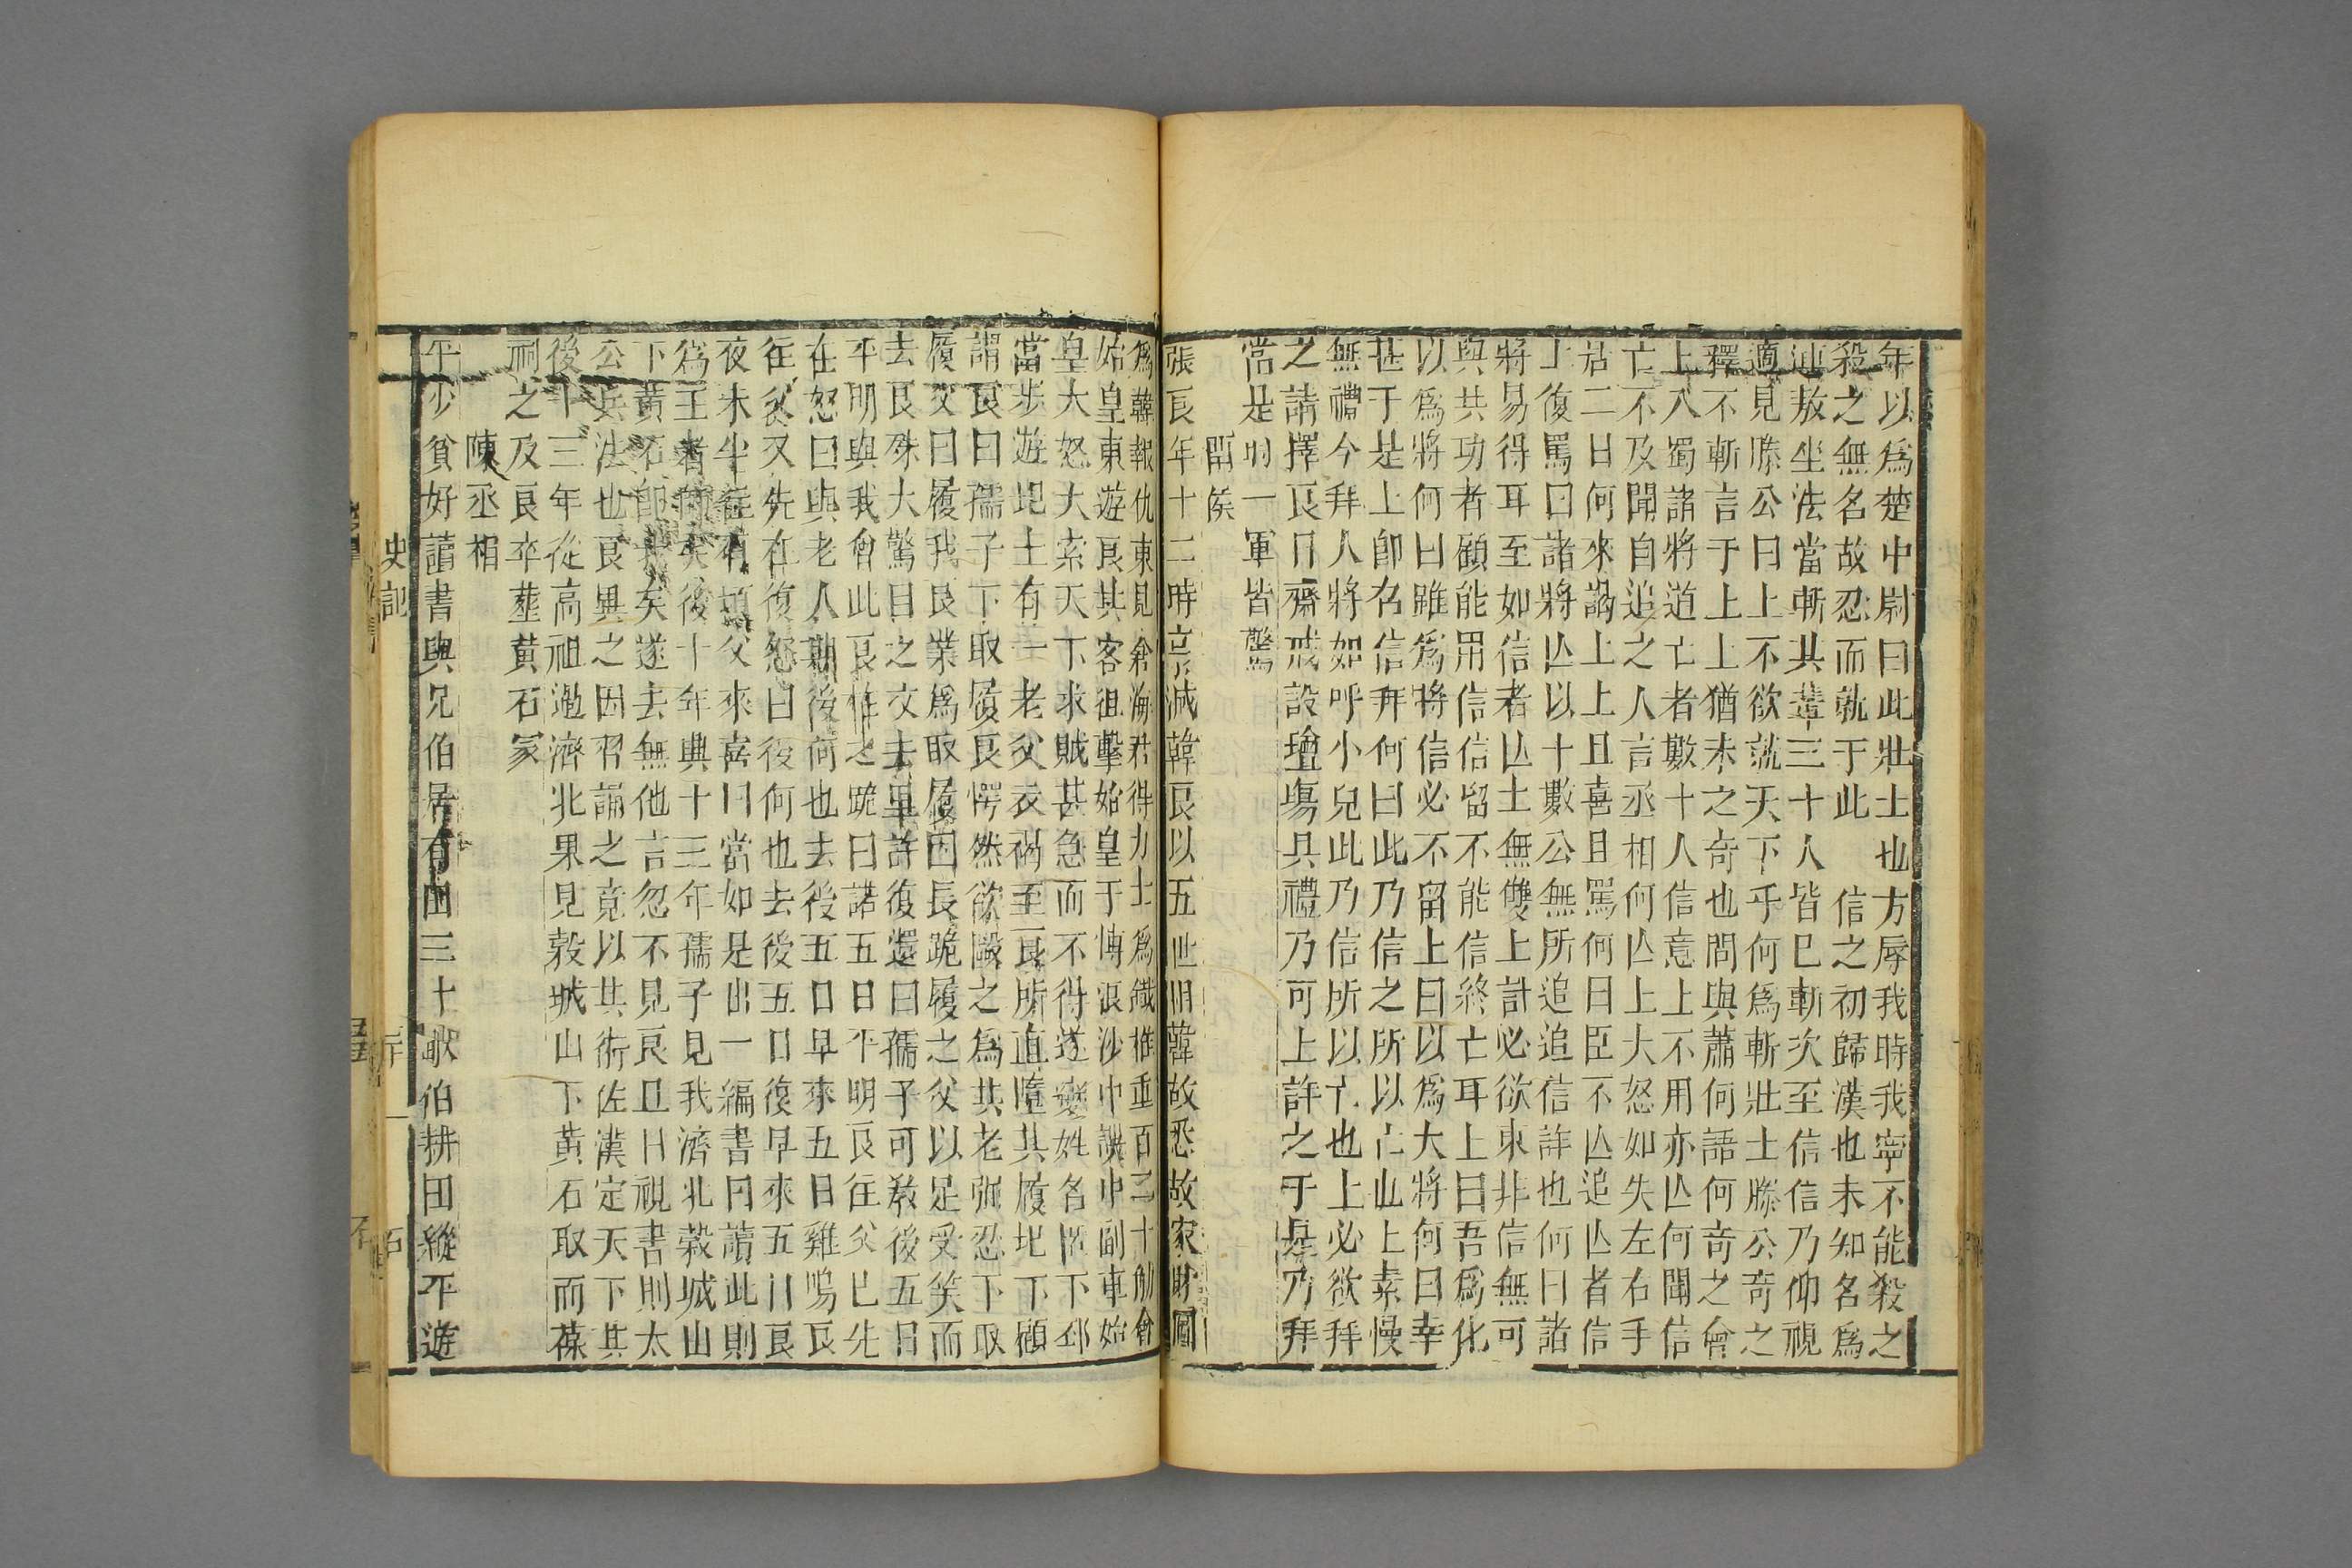 年以爲楚中尉曰此壯士也方辱我時我寧不能殺之
殺之無名故忍而就于此 信之初歸漢也未知名爲
敖坐法當斬其輩三十人皆已斬次至信信乃仰視
適見滕公曰上不欲就天下乎何爲斬壯士滕公奇之
釋不斬言于上上猶未之奇也間與蕭何語何奇之會
上入蜀諸將道亡者數十人信意上不用亦亾何聞信
亡不及聞自追之人言丞相何亾上大怒如失左右手
居二日何來謁上上且喜且罵何曰臣不亾追亾者信
上復罵曰諸將亾以十數公無所追追信詐也何曰諸
將易得耳至如信者亾士無雙上計必欲東非信無可
與共功者顧能用信信留不能信終亡耳上曰吾爲
以爲將何曰雖爲將信必不留上曰以爲大將何曰幸
甚于是上卽召信拜何曰此乃信之所以亡也上素慢
無禮今拜人將如呼小兒此乃信所以亡也上必欲拜
之請擇良日齋戒設壇場具禮乃可上許之于是乃拜
當是時一軍皆驚
留侯
張良年十二時京滅韓良以五世相韓故悉故家財圖
爲韓報仇東見倉海君得力士爲鐵椎重百二十觔會
始皇東遊良其客狙擊始皇于博浪沙中誤中副車始
皇大怒大索天下求賊甚急而不得遂變姓名匿下邳
當步遊圯上有一老父衣褐至良所直墮其履圯下顧
謂良曰孺子下取履良愕然欲毆之爲其老彊忍下取
履父曰履我良業爲取履因長跪履之父以足受笑而
去良殊大驚目之父去里許復還曰孺子可敎後五日
平明與我會此良怪之跪曰諾五日平明良往父已先
在怒曰與老人期後何也去後五日早來五日雞鳴良
往父又先在復怒曰後何也去後五日復早來五日良
夜未半往有頃父來喜曰當如是出一編書曰讀此則
爲王者師矣後十年興十三年孺子見我濟北穀城山
下黃石卽我矣遂去無他言忽不見良旦日視書則太
公兵法也良異之因習誦之竟以其術佐漢定天下其
後十三年從高祖過濟北果見穀城山下黃石取而葆
祠之及良卒塟黃石冢
陳丞相
平少貧好讀書與兄伯居有田三十畝伯耕田縱平遊
史記